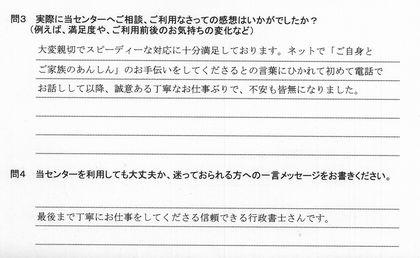 問3 実際に当センターへご相談、ご利用なさっての感想はいかがでしたか？
(例えば、満足度や、ご利用前後のお気持ちの変化など)
大変親切でスピーディーな対応に十分満足しております。ネットで「ご自身と
ご家族のあんしん」のお手伝いをしてくださるとの言葉にひかれて初めて電話で
お話しして以降、誠意ある丁寧なお仕事ぶりで、不安も皆無になりました。
問4 当センターを利用しても大丈夫か、迷っておられる方への一言メッセージをお書きください。
最後まで丁寧にお仕事をしてくださる信頼できる行政書士さんです。